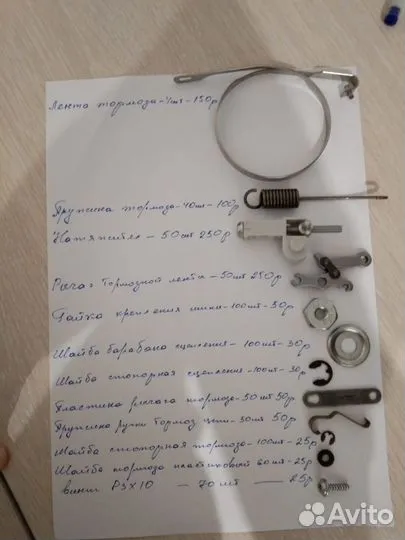 Лента тормоза - 1шт - 150р
Пружина тормоза - 40шт - 100р
Натяжитель - 50шт 250р
Рычаг Тормозной ленты - 50шт 250р
Гайка крепления шины - 100шт - 50р
Шайба барабана сцепления - 100шт - 30р
Шайба стопорная сцепления - 100шт - 30р
Пластина рычага тормоза - 50шт 50р
Пружина ручки тормоз цепи - 50шт 50р
Шайба стопорная тормоза - 100шт - 25р
Шайба тормоза пластиковый 60шт - 25р
винт Р5х10 — 70шт — 25р
Avito